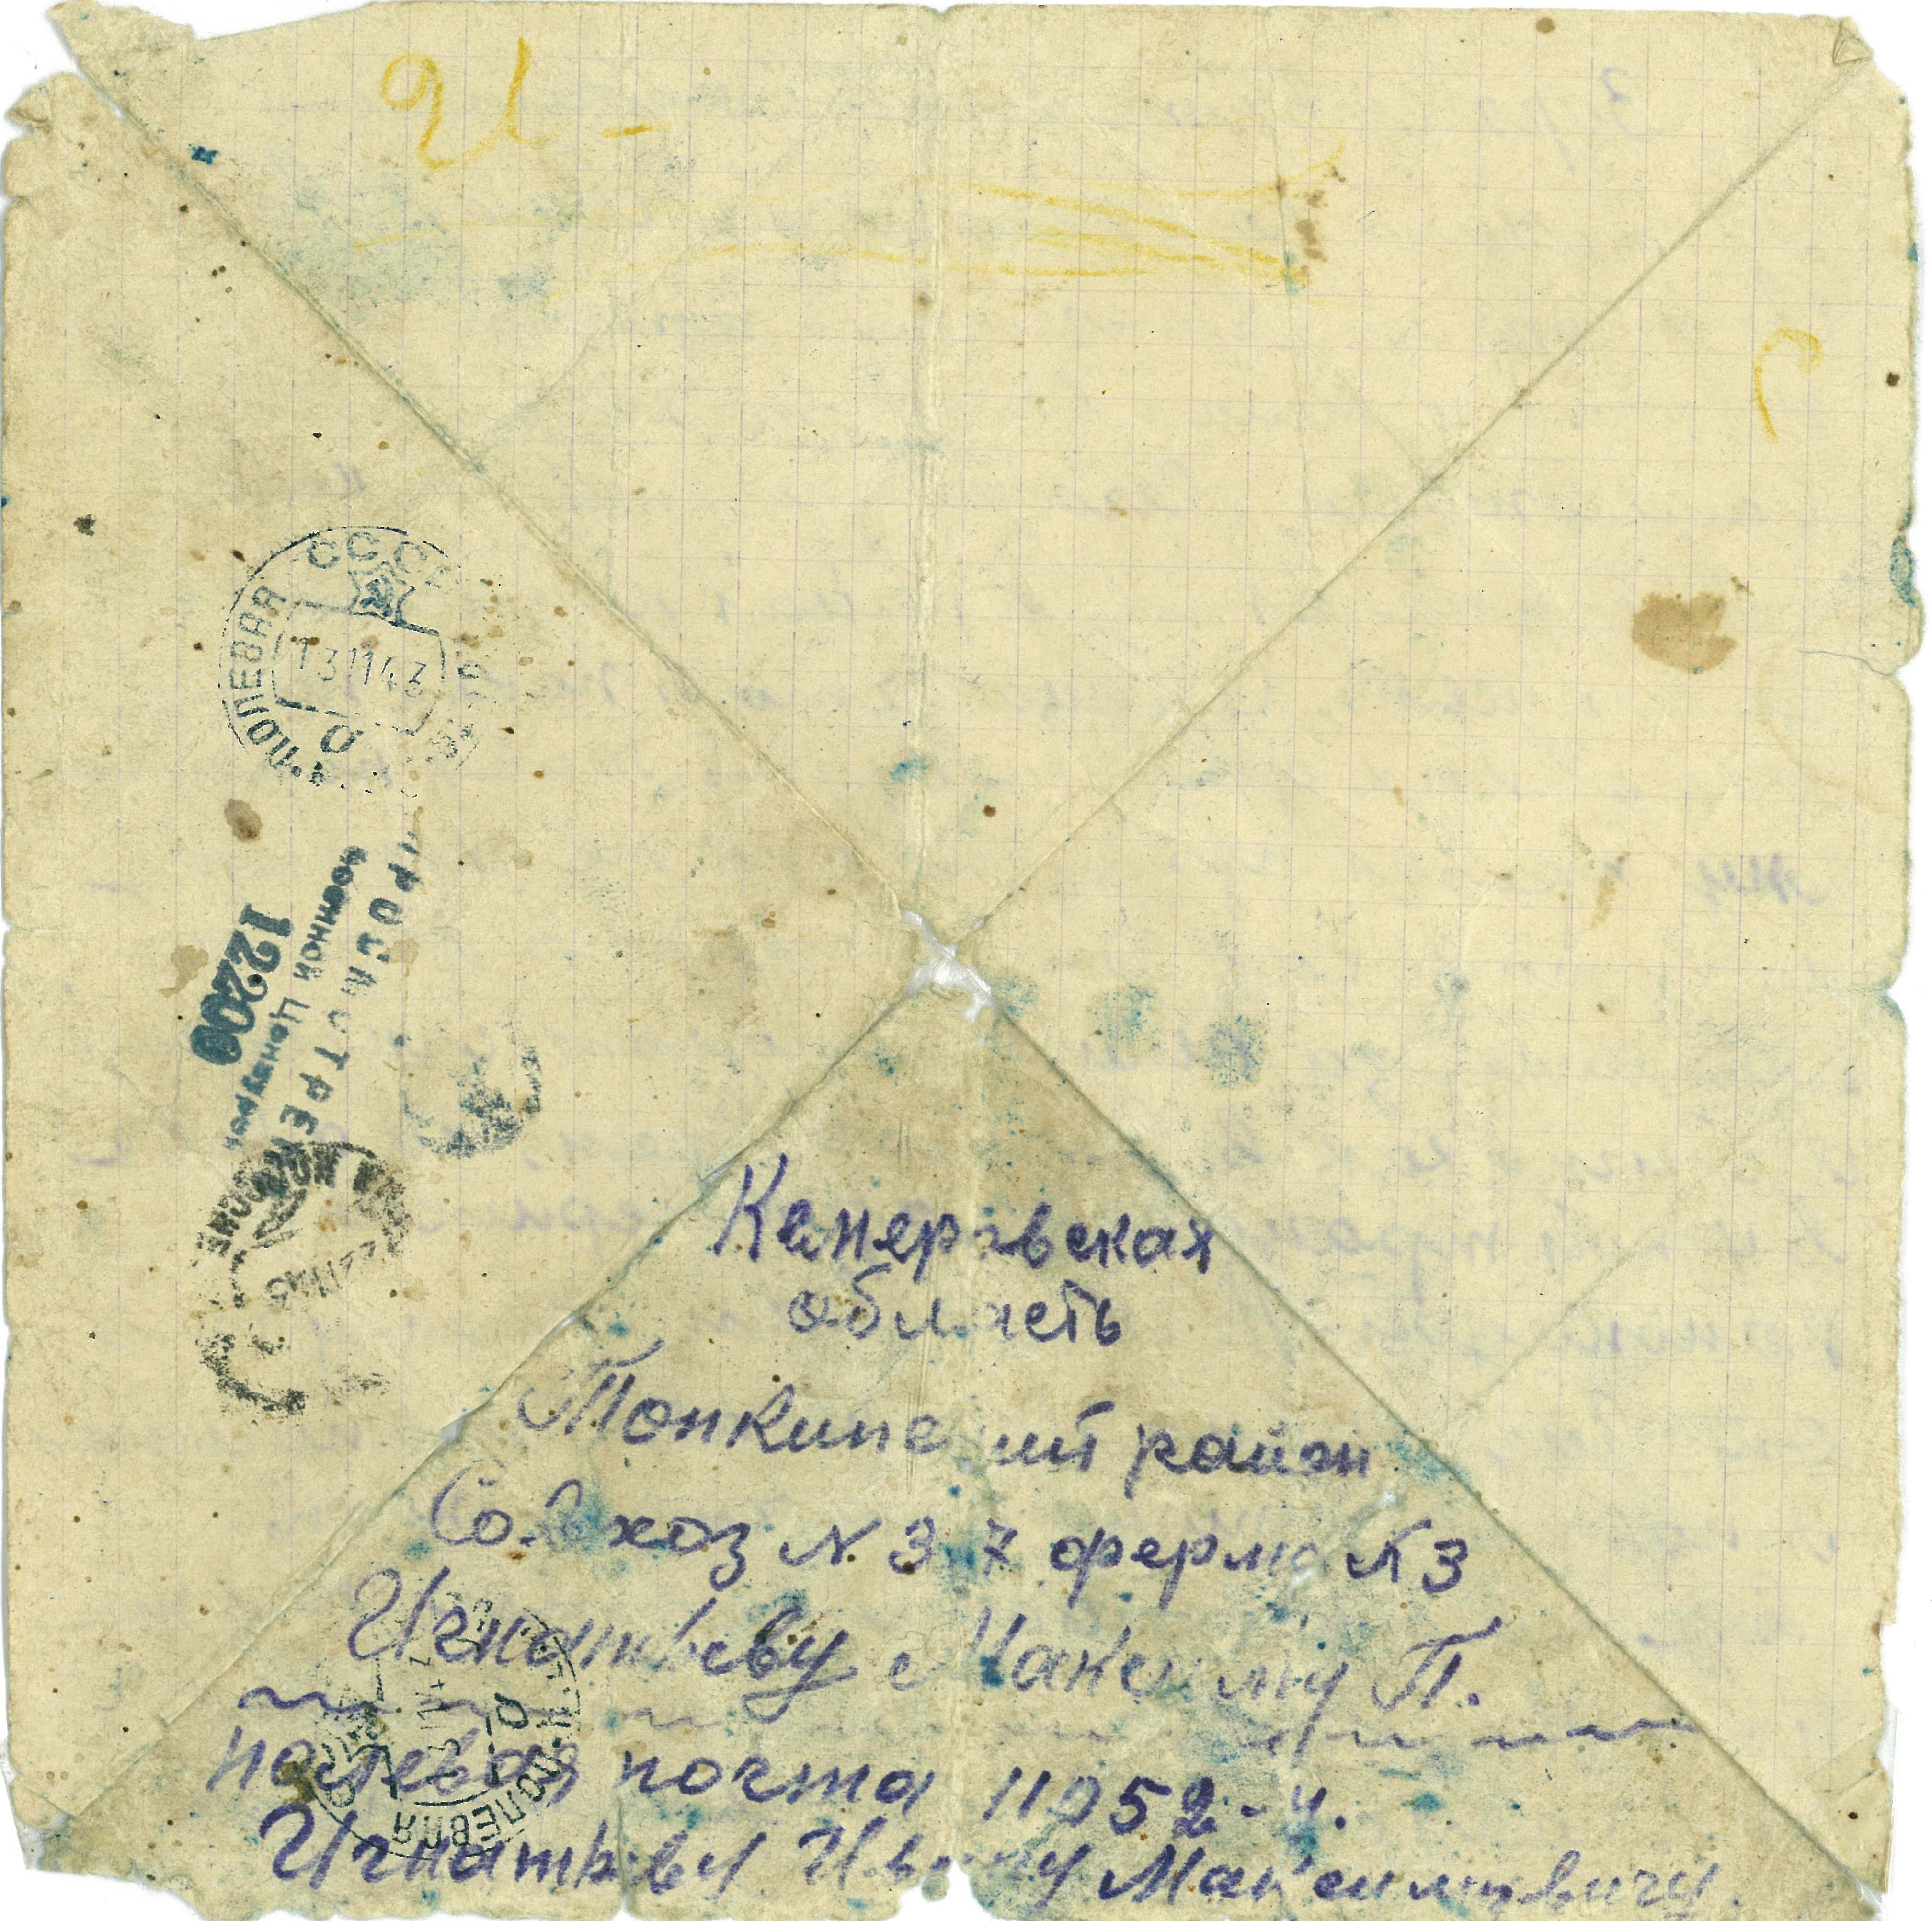 21-
СССР
ПОЛЕВАЯ
13 11 43
а
ПРОСМОТРЕНО
Военной Цензурой
12200
Кемеровская
область
Топкинский район
Совхоз N 37 ферма N 3
Игнатьеву Максиму П.
полевая почта 11052-ч.
Игнатьеву Ивану Максимовичу.
ПОЛЕВАЯ